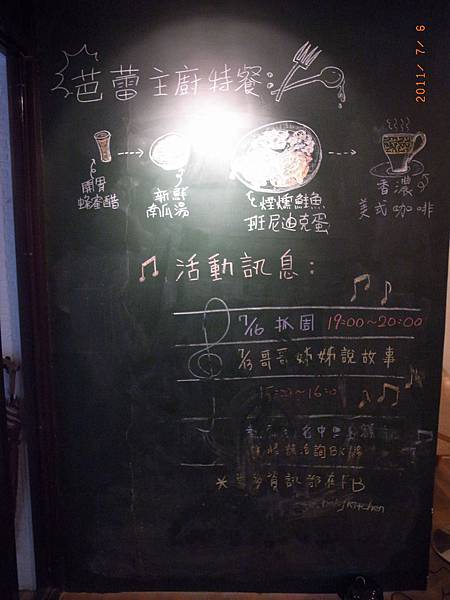 芭蕾主廚特餐:
開胃
蜂蜜醋
新鮮
南瓜湯
煙燻鮭魚
班尼迪克蛋
香濃
美式咖啡
活動訊息:
7/10 抓周 19:00~20:00
哥哥姊姊說故事
報名中
請洽詢
資訊都在FB
kitchen
2011/7/6